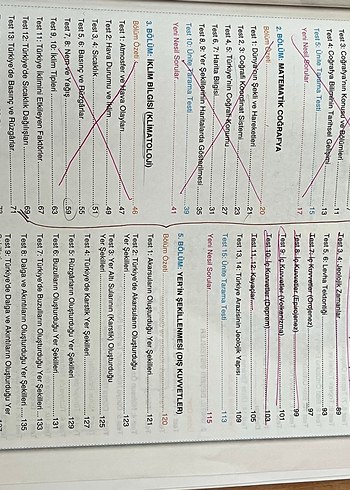 Test 3: Coğrafya'nın Konusu ve Bölümleri 11
Test 4: Coğrafya Biliminin Tarihsel Gelişimi 13
Test 5: Ünite Tarama Testi 15
Yeni Nesil Sorular 17
2. BÖLÜM: MATEMATİK COĞRAFYA
Bölüm Özeti 20
Test 1: Dünya'nın Şekli ve Hareketleri 21
Test 2, 3: Coğrafi Koordinat Sistemi 23
Test 4, 5: Türkiye'nin Coğrafi Konumu 27
Test 6, 7: Harita Bilgisi 31
Test 8, 9: Yer Şekillerinin Haritalarda Gösterilmesi 35
Test 10: Ünite Tarama Testi 39
Yeni Nesil Sorular 41
3. BÖLÜM: İKLİM BİLGİSİ (KLİMATOLOJİ)
Bölüm Özeti 46
Test 1: Atmosfer ve Hava Olayları 47
Test 2: Hava Durumu ve İklim 49
Test 3, 4: Sıcaklık 51
Test 5, 6: Basınç ve Rüzgârlar 55
Test 7, 8: Nem ve Yağış 59
Test 9, 10: İklim Tipleri 63
Test 11: Türkiye İklimini Etkileyen Faktörler 67
Test 12: Türkiye'de Sıcaklık Dağılışları 69
Test 13: Türkiye'de Basınç ve Rüzgârlar 71
Test 3, 4: Jeolojik Zamanlar 89
Test 5, 6: Levha Tektoniği 93
Test 7: İç Kuvvetler (Orojenez) 97
Test 8: İç Kuvvetler (Epirojenez) 99
Test 9: İç Kuvvetler (Volkanizma) 101
Test 10: İç Kuvvetler (Deprem) 103
Test 11, 12: Kayaçlar 105
Test 13, 14: Türkiye Arazisinin Jeolojik Yapısı 109
Test 15: Ünite Tarama Testi 113
Yeni Nesil Sorular 115
5. BÖLÜM: YER'İN ŞEKİLLENMESİ (DIŞ KUVVETLER)
Bölüm Özeti 120
Test 1: Akarsuların Oluşturduğu Yer Şekilleri 121
Test 2: Türkiye'de Akarsuların Oluşturduğu
Yer Şekilleri 123
Test 3: Yer Altı Sularının (Karstik) Oluşturduğu
Yer Şekilleri 125
Test 4: Türkiye'de Karstik Yer Şekilleri 127
Test 5: Rüzgârların Oluşturduğu Yer Şekilleri 129
Test 6: Buzulların Oluşturduğu Yer Şekilleri 131
Test 7: Türkiye'de Buzulların Oluşturduğu Yer Şekilleri 133
Test 8: Dalga ve Akıntıların Oluşturduğu Yer Şekilleri 135
Test 9: Türkiye'de Dalga ve Akıntıların Oluşturduğu Yer